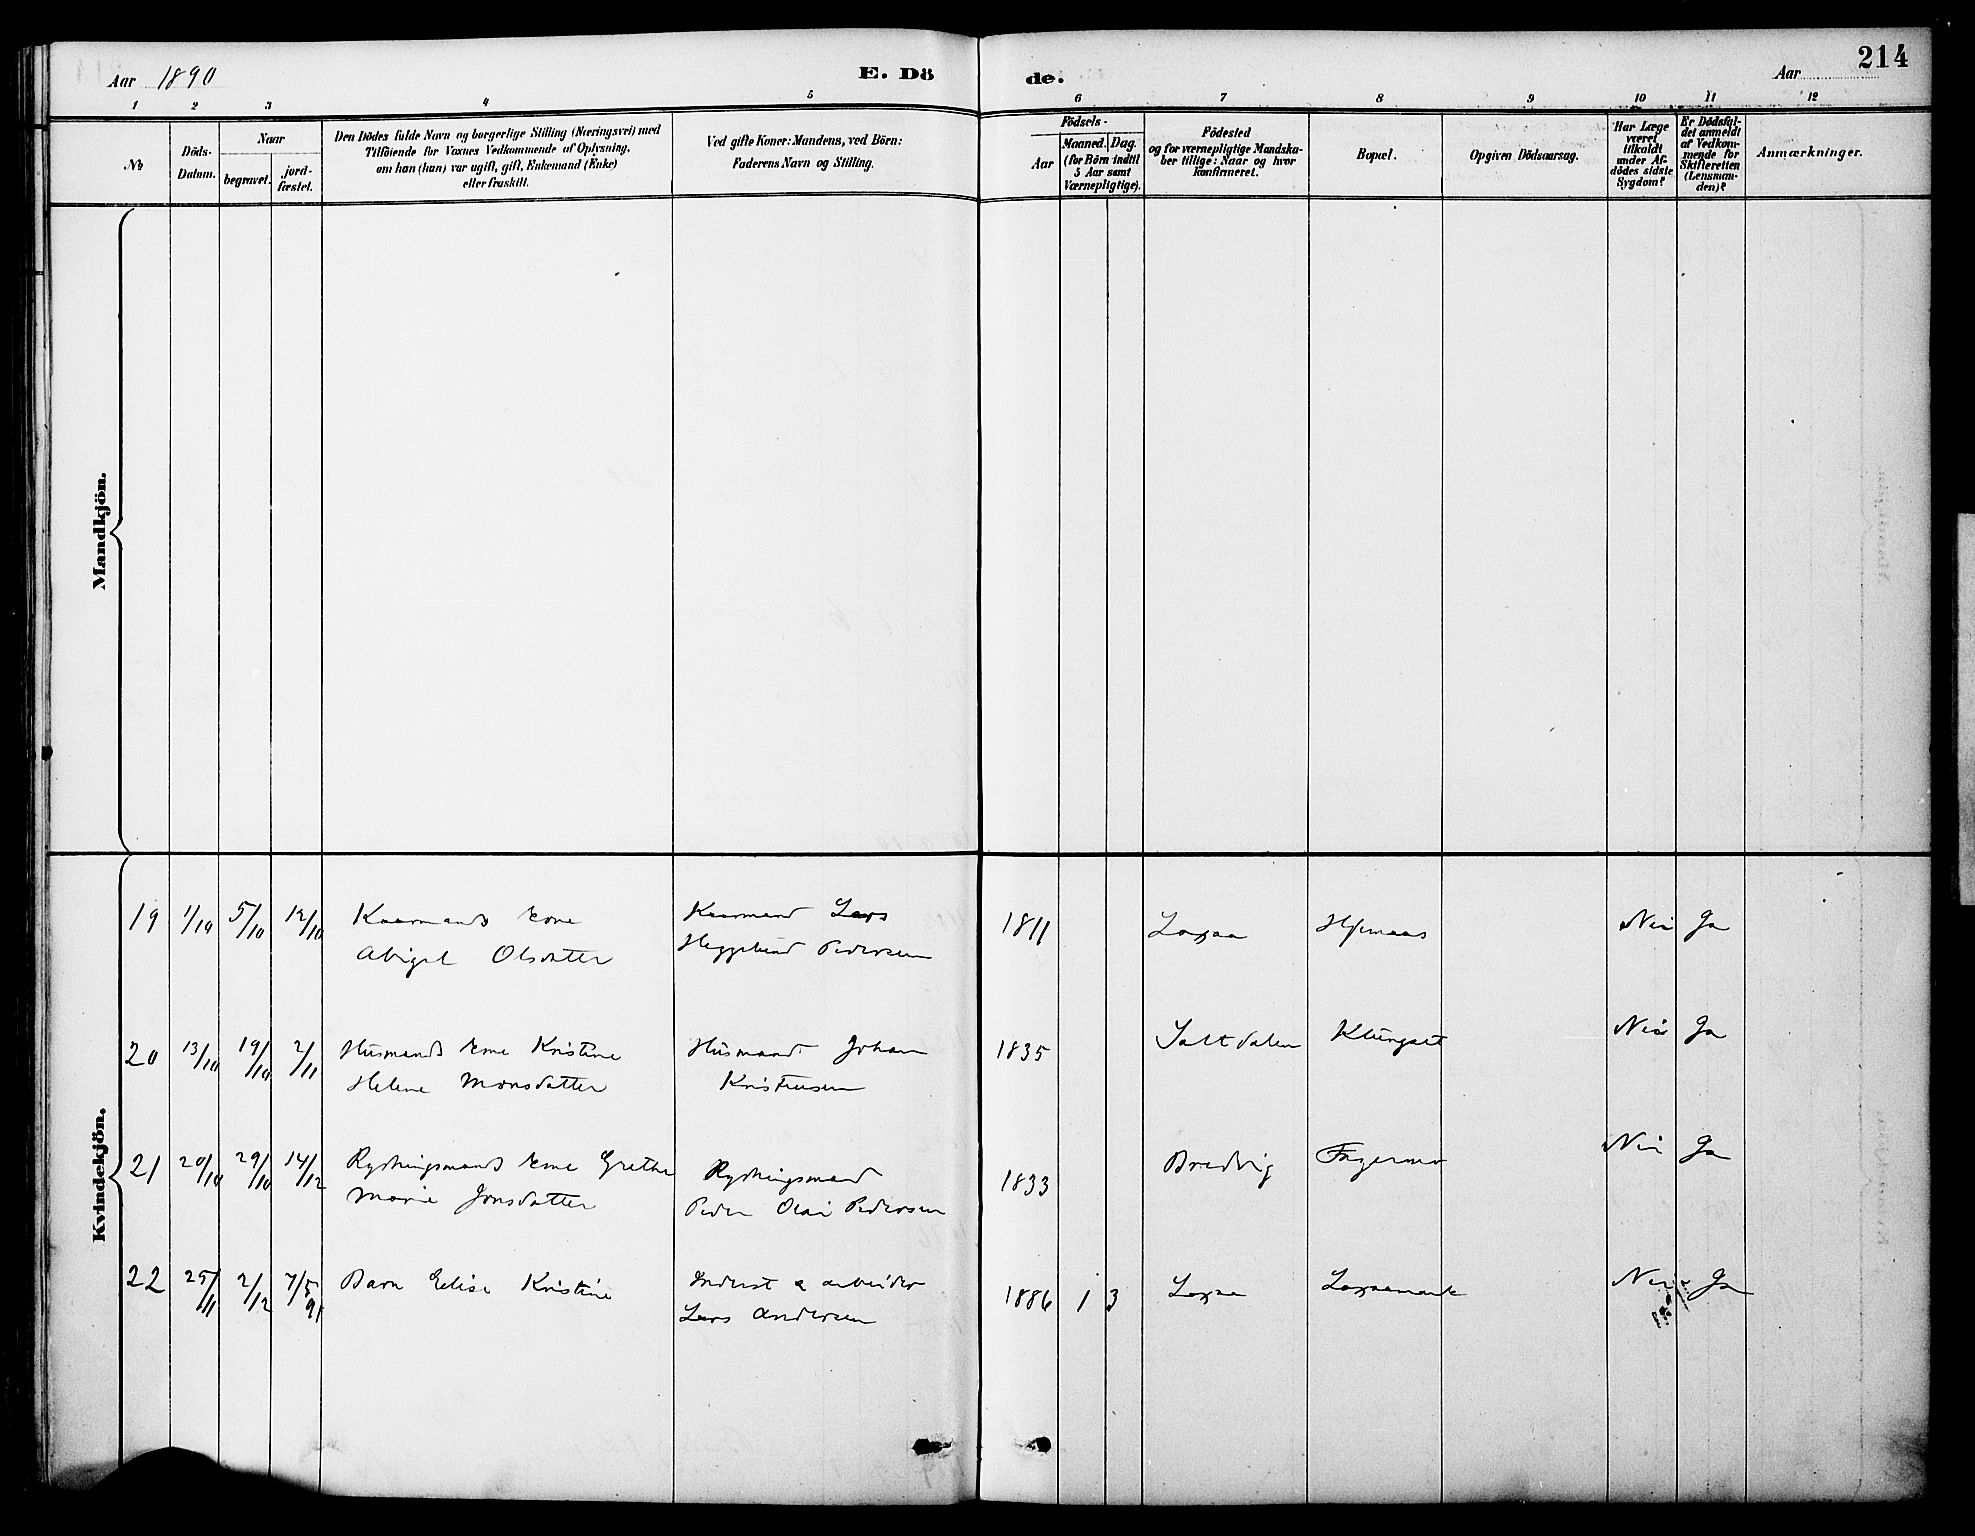 Aar 1890
E. Dö
de.
Aar
214
1 2 3 4 5 6 7 8 9 10 11 12
No
Döds-
Datum.
Naar
begravet.
jord-
fæstet.
Den Dödes fulde Navn og borgerlige Stilling (Næringsvei) med
Tilföiende for Voxnes Vedkommende af Oplysning,
om han (hun) var ugift, gift, Enkemand (Enke)
eller fraskilt.
Ved gifte Koner: Mandens, ved Börn:
Faderens Navn og Stilling.
Födsels-
Aar
Maaned. Dag.
(for Börn indtil
5 Aar samt
Værnepligtige).
Födested
og for værnepligtige Mandska-
ber tillige: Naar og hvor
konfirmeret.
Bopæl.
Opgiven Dödsaarsag.
Har Læge
været
tilkaldt
under Af-
dödes sidste
Sygdom?
Er Dödsfal-
det anmeldt
af Vedkom-
mende for
Skifteretten
(Lensman-
den)?
Anmærkninger.
Mandkjön.
Kvindekjön.
19 1/10 5/10 12/10 Kaarmands kone Kaarmand Lars 1811 Hjemaas Nei Ja
Abigel Olsdatter Pedersen
20 13/10 19/10 2/11 Husmands kone Kristine Husmand Johan 1835 Saltdalen Klungset Nei Ja
Helene Monsdatter Kristensen
21 20/10 29/10 14/12 Rydningsmands kone Grethe Rydningsmand 1833 Bredvig Fagermo Nei Ja
Marie Jonsdatter Peder Olai Pedersen
22 25/11 2/12 7/5 91 Barn Elise Kristine Inderst & arbeider 1886 1 3 Nei Ja
Lars Andersen